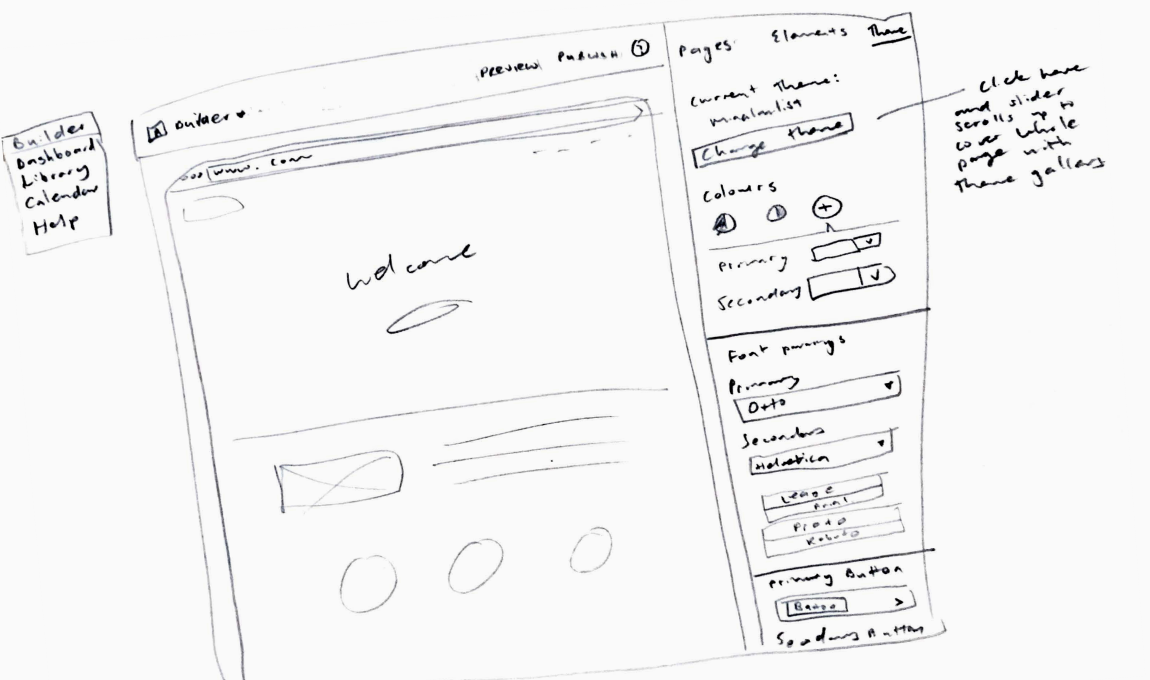 Builder
Dashboard
Library
Calendar
Help
Builder
PREVIEW PUBLISH ?
www. com
Welcome
Pages Elements Theme
Current Theme:
minamlist
Change theme
Click here
and slider
scrolls up to
cover whole
page with
theme gallery
Colours
+
Primary
Secondary
Font parings
Primary
Otto
Secondary
Helvetica
Leage
Arial
Proto
Roboto
Primary Button
Button
Secondary Button